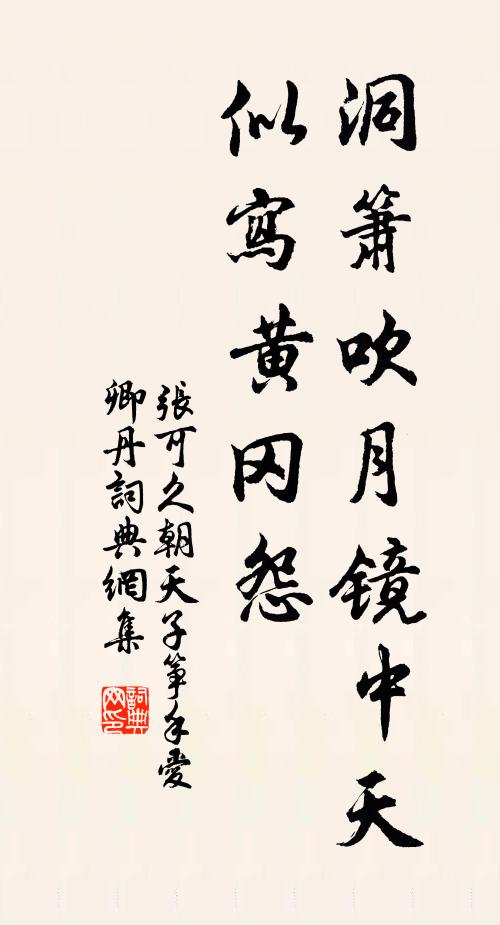 洞簫吹月镜中天
似寫黄冈怨
張可久朝天子筝手愛
卿丹詞典網集
詞典网印